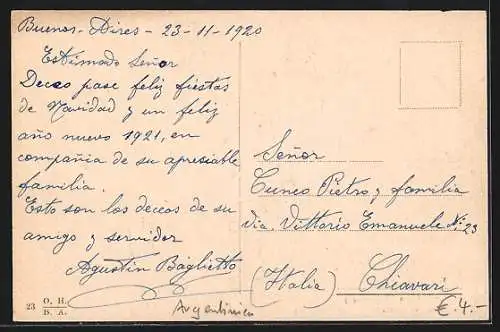 Buenos-Aires-23-11-1920
Estimado Señor
Deceo pase feliz fiestas
de Navidad y un feliz
año nuevo 1921, en
compañia de su apresiable
familia.
Esto son los deceos de su
amigo y servidor
Agustin Baglietto
Señor
Cuneo Pietro y familia
Via. Vittorio Emanuele No. 23
(Italia) Chiavari
23 O. H. B. A.
Argentinien
€ 4.-